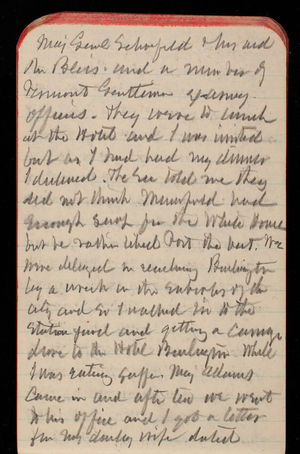 Maj Genl Schofield & his aid
Mr Bliss and a number of
Vermont Gentlemen
officers. They were to lunch
at the Hotel and I was invited
but as I had had my dinner
I declined. The Gen told me they
did not think had
enough for the White House
but he rather liked Port the best. We
were delayed in reaching Burlington
by a wreck in the suburbs of the
city and so I walked in to the
Station yard and getting a carriage
drove to the Hotel Burlington. While
I was eating supper Maj Adams
came in and after tea we went
to his office and I got a letter
from my darling wife dated